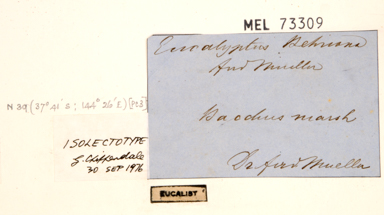 MEL 73309
Eucalyptus Behriana
Ferd Mueller
N 39 (37° 41' S; 144° 26' E) [PC3]
Bacchus marsh
ISOLECTOTYPE
G. Chippendale
30 SEP 1976
Dr Ferd Mueller
EUCALIST